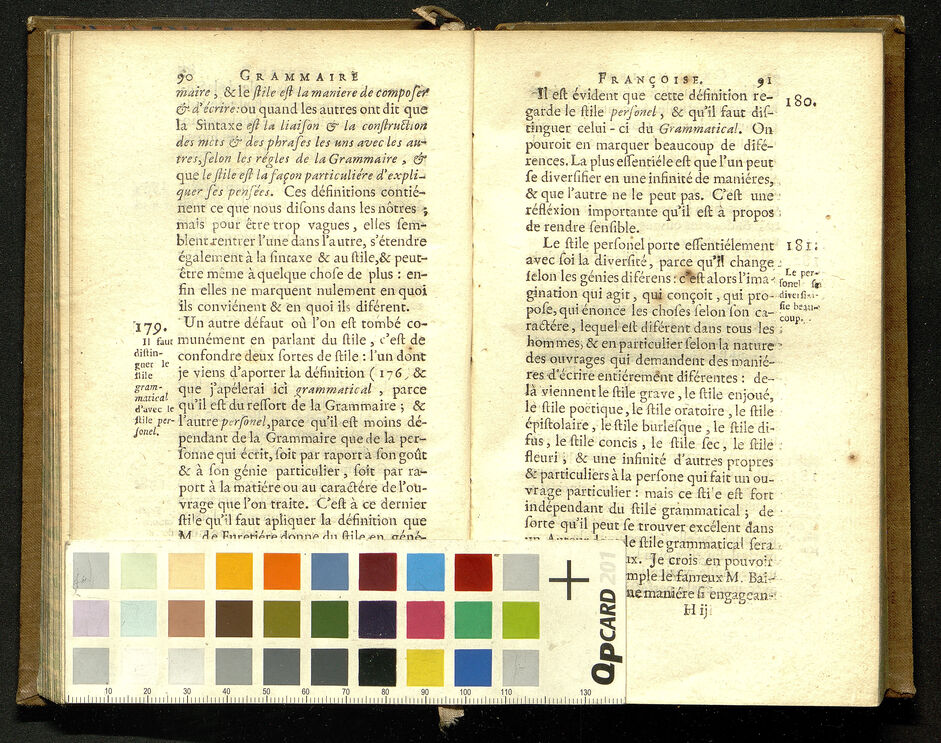 90 GRAMMAIRE
maire, & le ſtile eſt la maniere de compoſer
& d'écrire: ou quand les autres ont dit que
la Sintaxe eſt la liaiſon & la conſtruction
des mots & des phraſes les uns avec les au-
tres, ſelon les régles de la Grammaire, &
que le ſtile eſt la façon particuliére d'expli-
quer ſes penſées. Ces définitions contié-
nent ce que nous diſons dans les nôtres;
mais pour être trop vagues, elles ſem-
blent rentrer l'une dans l'autre, s'étendre
également à la ſintaxe & au ſtile, & peut-
être même à quelque choſe de plus: en-
fin elles ne marquent nulement en quoi
ils conviénent & en quoi ils diférent.
Un autre défaut où l'on eſt tombé co-
munément en parlant du ſtile, c'eſt de
confondre deux ſortes de ſtile: l'un dont
je viens d'aporter la définition (176, &
que j'apélerai ici grammatical, parce
qu'il eſt du reſſort de la Grammaire; &
l'autre perſonel, parce qu'il eſt moins dé-
pendant de la Grammaire que de la per-
ſonne qui écrit, ſoit par raport à ſon goût
& à ſon génie particulier, ſoit par ra-
port à la matiére ou au caractére de l'ou-
vrage que l'on traite. C'eſt à ce dernier
ſtile qu'il faut apliquer la définition que
M. de Furetiére donne du ſtile en géné-
179.
Il faut
diſtin-
guer le
ſtile
gram-
matical
d'avec le
ſtile per-
ſonel.
FRANÇOISE. 91
Il eſt évident que cette définition re-
garde le ſtile perſonel, & qu'il faut diſ-
tinguer celui-ci du Grammatical. On
pouroit en marquer beaucoup de difé-
rences. La plus eſſentiéle eſt que l'un peut
ſe diverſifier en une infinité de maniéres,
& que l'autre ne le peut pas. C'eſt une
réfléxion importante qu'il eſt à propos
de rendre ſenſible.
Le ſtile perſonel porte eſſentiélement
avec ſoi la diverſité, parce qu'il change
ſelon les génies diférens: c'eſt alors l'ima-
gination qui agit, qui conçoit, qui pro-
poſe, qui énonce les choſes ſelon ſon ca-
ractére, lequel eſt diférent dans tous les
hommes, & en particulier ſelon la nature
des ouvrages qui demandent des manié-
res d'écrire entiérement diférentes: de-
là viennent le ſtile grave, le ſtile enjoué,
le ſtile poetique, le ſtile oratoire, le ſtile
épiſtolaire, le ſtile burleſque, le ſtile di-
fus, le ſtile concis, le ſtile ſec, le ſtile
fleuri, & une infinité d'autres propres
& particuliers à la perſone qui fait un ou-
vrage particulier: mais ce ſtile eſt fort
indépendant du ſtile grammatical; de
ſorte qu'il peut ſe trouver excélent dans
un Auteur le ſtile grammatical ſera
ux. Je crois en pouvoir
mple le fameux M. Bai-
ne maniére ſi engagean-
H ij
180.
181.
Le per-
ſonel ſe
diverſi-
fie beau-
coup.
10 20 30 40 50 60 70 80 90 100 110 130
QPCARD 201